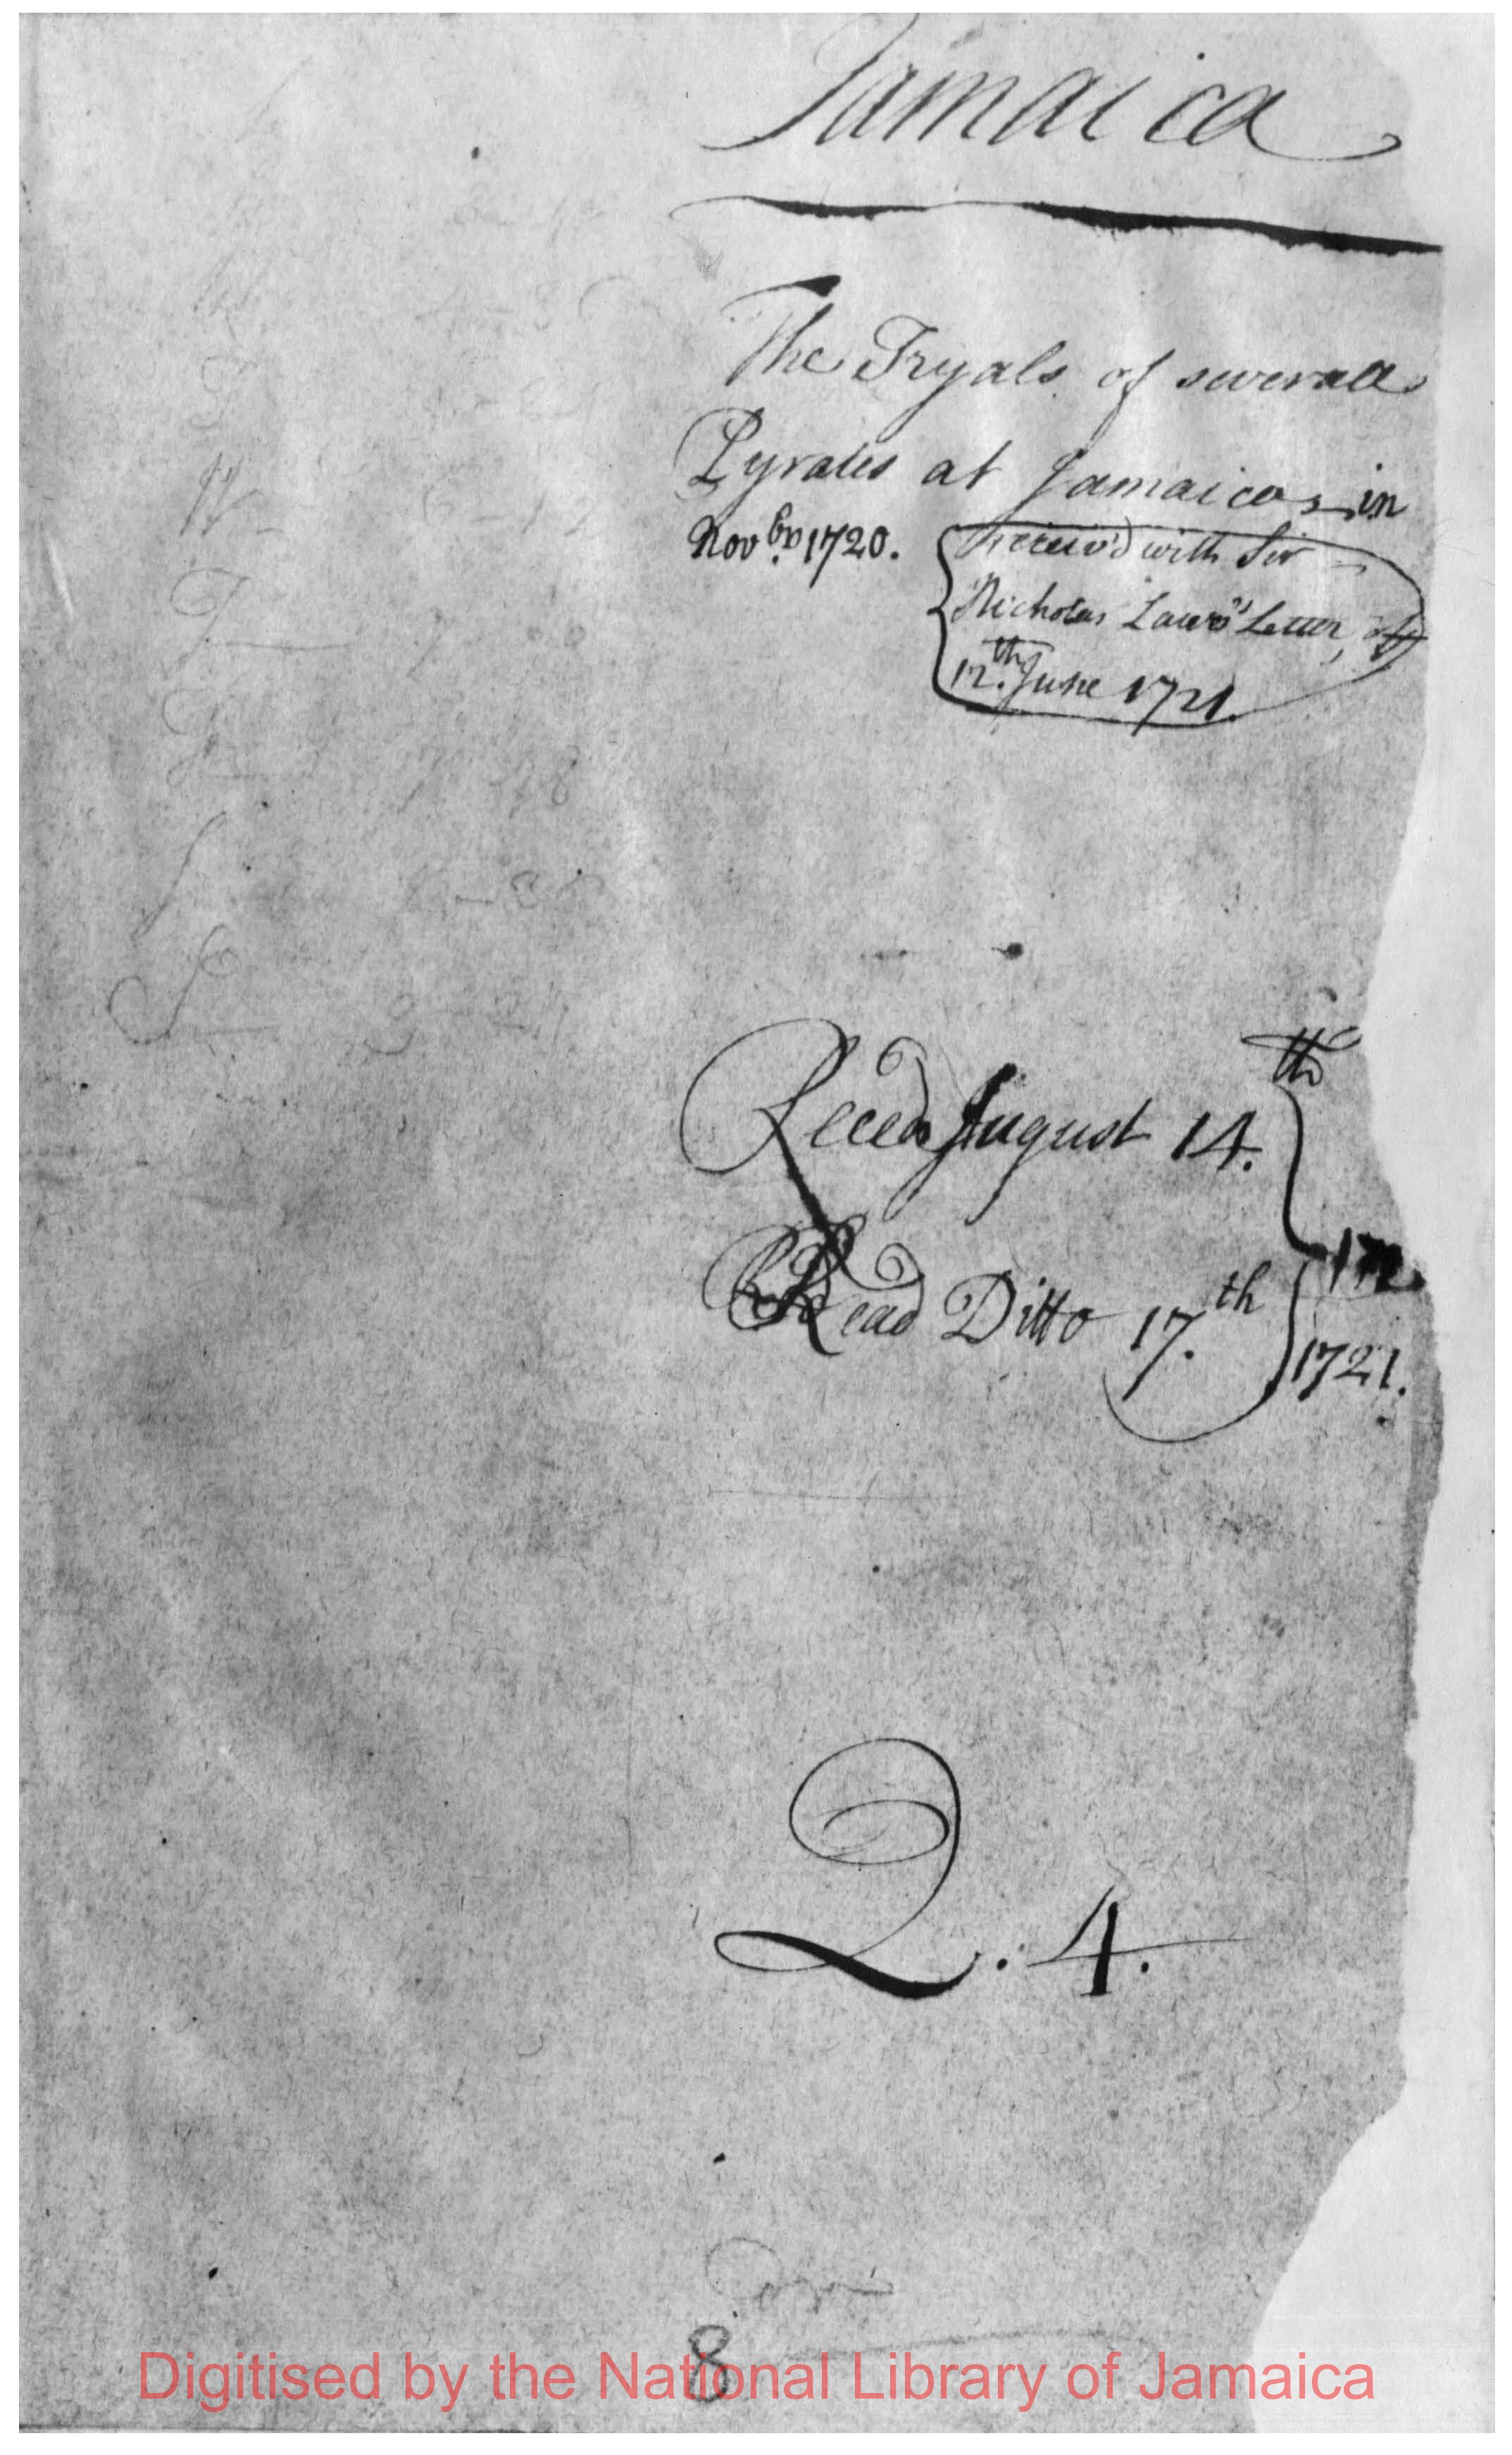 Jamaica
The Tryals of severall
Pyrates at Jamaica in
Novbr. 1720.
Receiv'd with Sir
Nicholas Laws's Letter, of
12.th June 1721.
Reced August 14.th
Read Ditto 17.th
1721.
Q. 4.
8
Digitised by the National Library of Jamaica